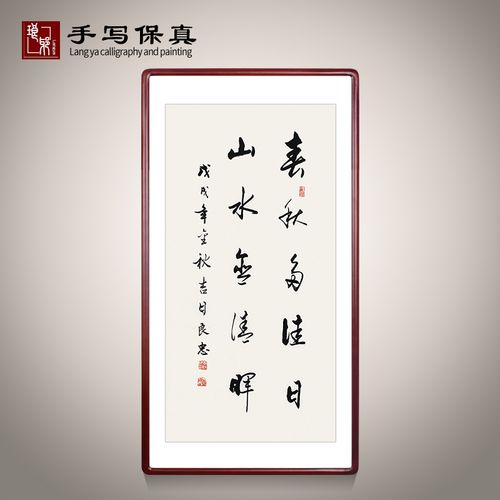 手写保真
Lang ya calligraphy and painting
春秋多佳日
山水含清暉
戊戌年金秋吉日良忠